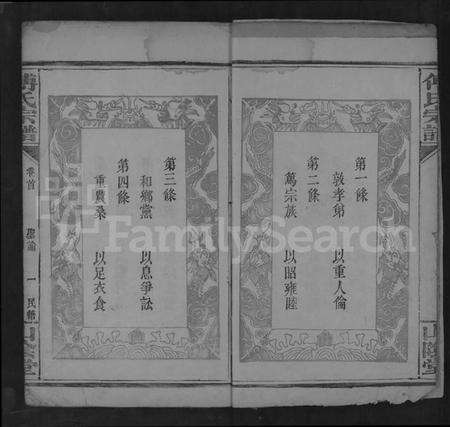 傅氏宗譜
第一條
敦孝弟 以重人倫
第二條
篤宗族 以昭雍睦
第三條
和鄉黨 以息爭訟
第四條
重農桑 以足衣食
傅氏宗譜
卷首
聖諭
一
FamilySearch